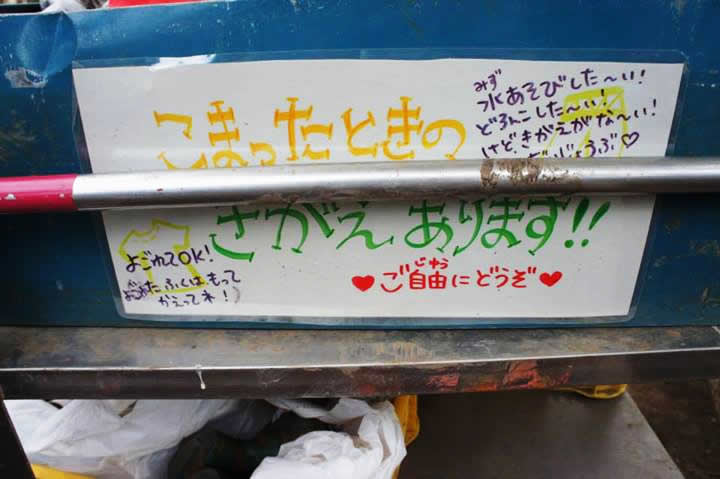 こまったときの
みず
水あそびした〜い!
どろんこした〜い!
けどきがえがな〜い!
だいじょうぶ♡
きがえあります!!
よごれてOK!
よごれたふくは、もって
かえってね!
じゆう
♥ご自由にどうぞ♥